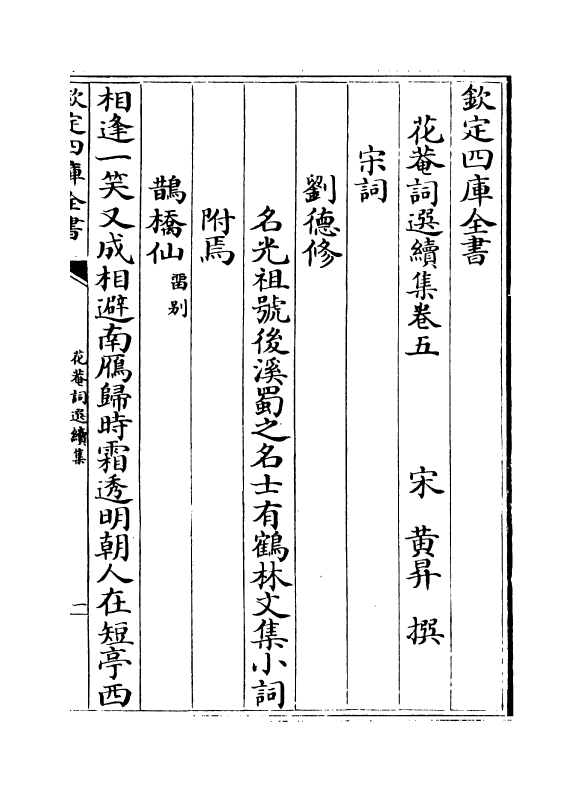 欽定四庫全書
花菴詞選續集卷五
宋 黃昇 撰
宋詞
劉德修
名光祖號後溪蜀之名士有鶴林文集小詞
附焉
鵲橋仙 畱别
相逢一笑又成相避南鴈歸時霜透明朝人在短亭西
欽定四庫全書
花菴詞選續集
一